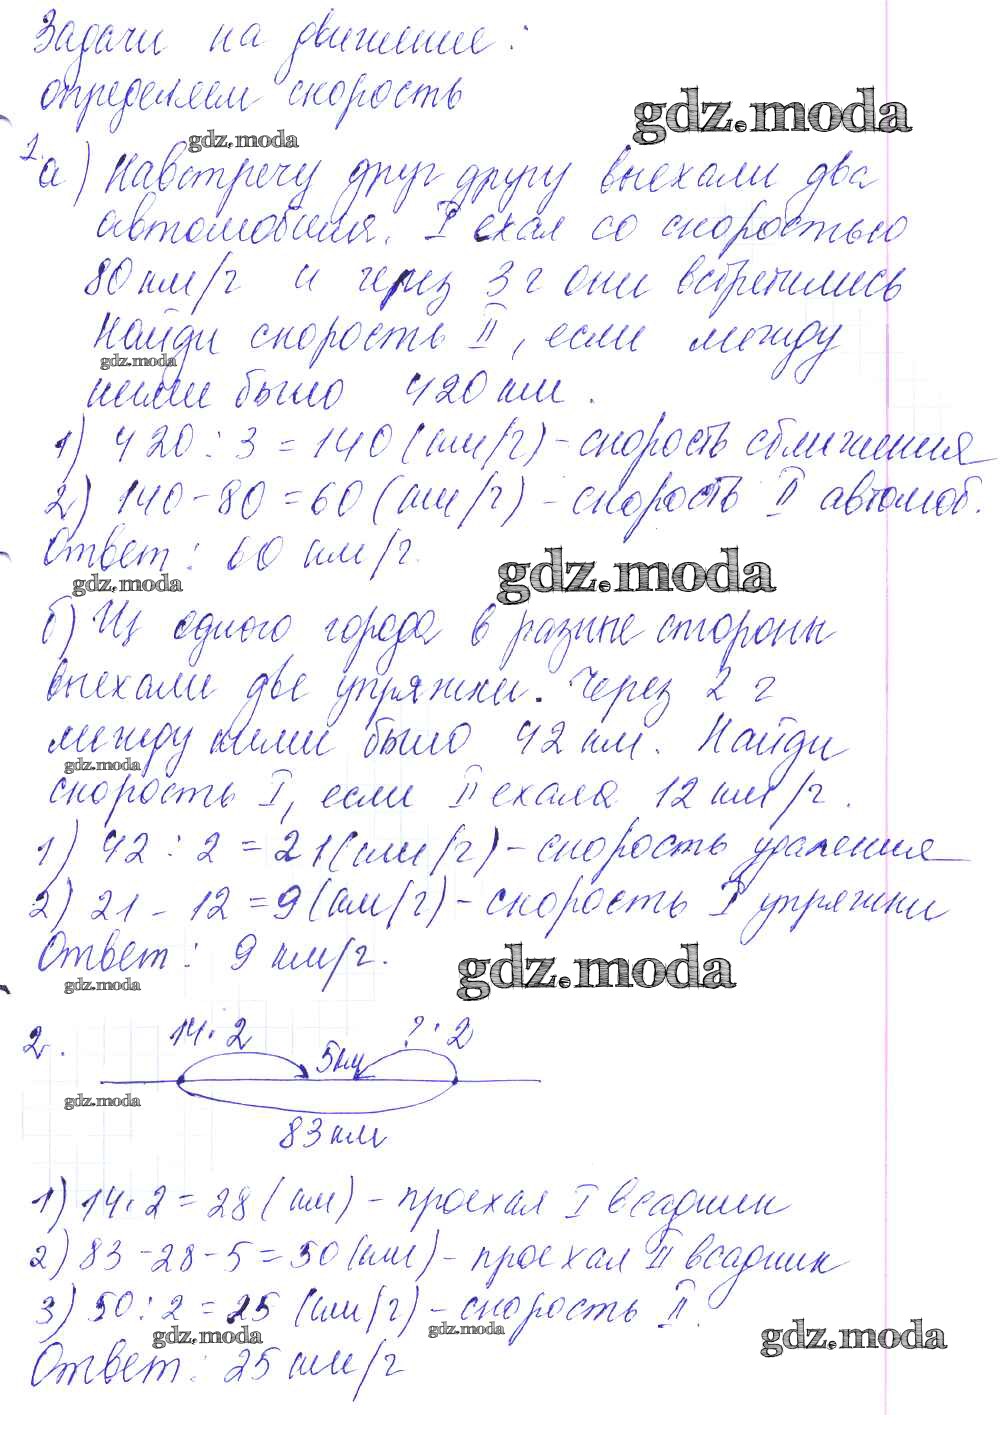 Задачи на движение:
определяем скорость
gdz.moda
gdz.moda
1.
а) Навстречу друг другу выехали два
автомобиля. I ехал со скоростью
80 км/ч и через 3 ч они встретились
Найди скорость II, если между
gdz.moda
ними было 420 км.
1) 420 : 3 = 140 (км/ч) - скорость сближения
2) 140 - 80 = 60 (км/ч) - скорость II автомоб.
Ответ: 60 км/ч.
gdz.moda
gdz.moda
б) Из одного города в разные стороны
выехали две упряжки. Через 2 ч
между ними было 42 км. Найди
gdz.moda
скорость I, если II ехала 12 км/ч.
1) 42 : 2 = 21 (км/ч) - скорость удаления
2) 21 - 12 = 9 (км/ч) - скорость I упряжки
Ответ: 9 км/ч.
gdz.moda
gdz.moda
2.
14 · 2 ? · 2
5 км
gdz.moda
83 км
1) 14 · 2 = 28 (км) - проехал I всадник
2) 83 - 28 - 5 = 50 (км) - проехал II всадник
3) 50 : 2 = 25 (км/ч) - скорость II.
gdz.moda
gdz.moda
gdz.moda
Ответ: 25 км/ч